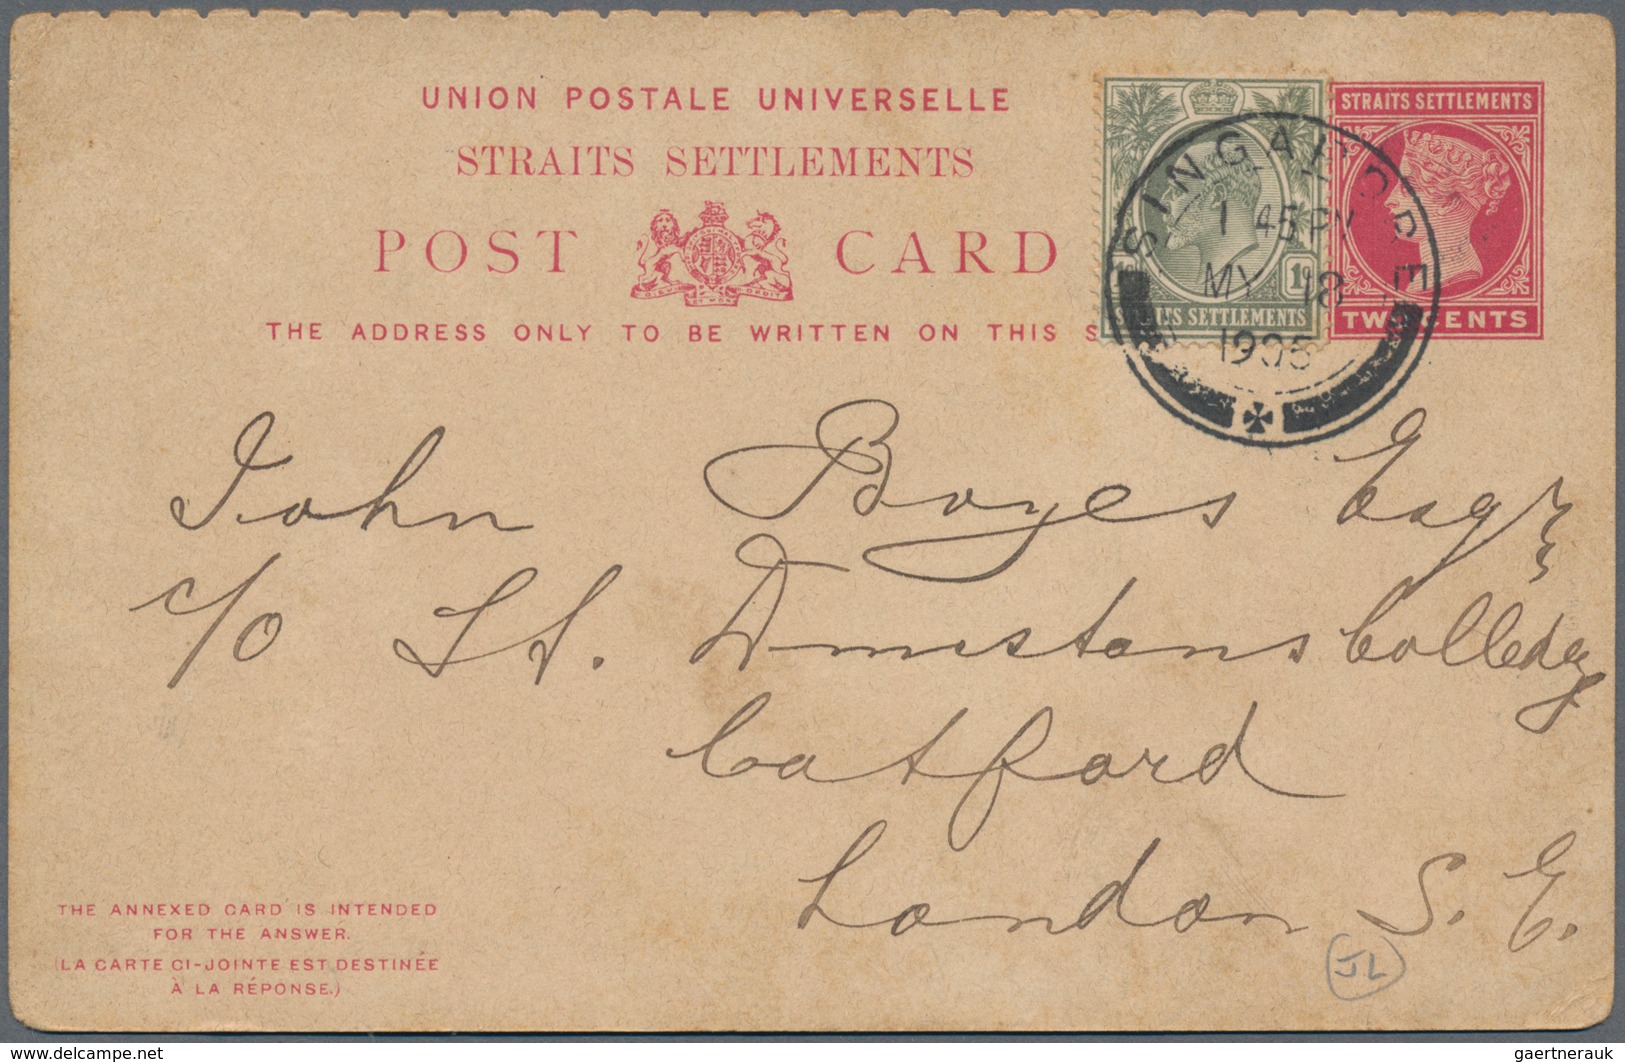 UNION POSTALE UNIVERSELLE
STRAITS SETTLEMENTS
POST CARD
THE ADDRESS ONLY TO BE WRITTEN ON THIS S
STRAITS SETTLEMENTS
1c
STRAITS SETTLEMENTS
TWO CENTS
SINGAPORE
1 45 PM
MY 18
1905
John Boyes Esqr
c/o St. Dunstans College
Catford
London S. E.
JL
THE ANNEXED CARD IS INTENDED
FOR THE ANSWER.
(LA CARTE CI-JOINTE EST DESTINÉE
À LA RÉPONSE.)
www.delcampe.net
gaertnerauk